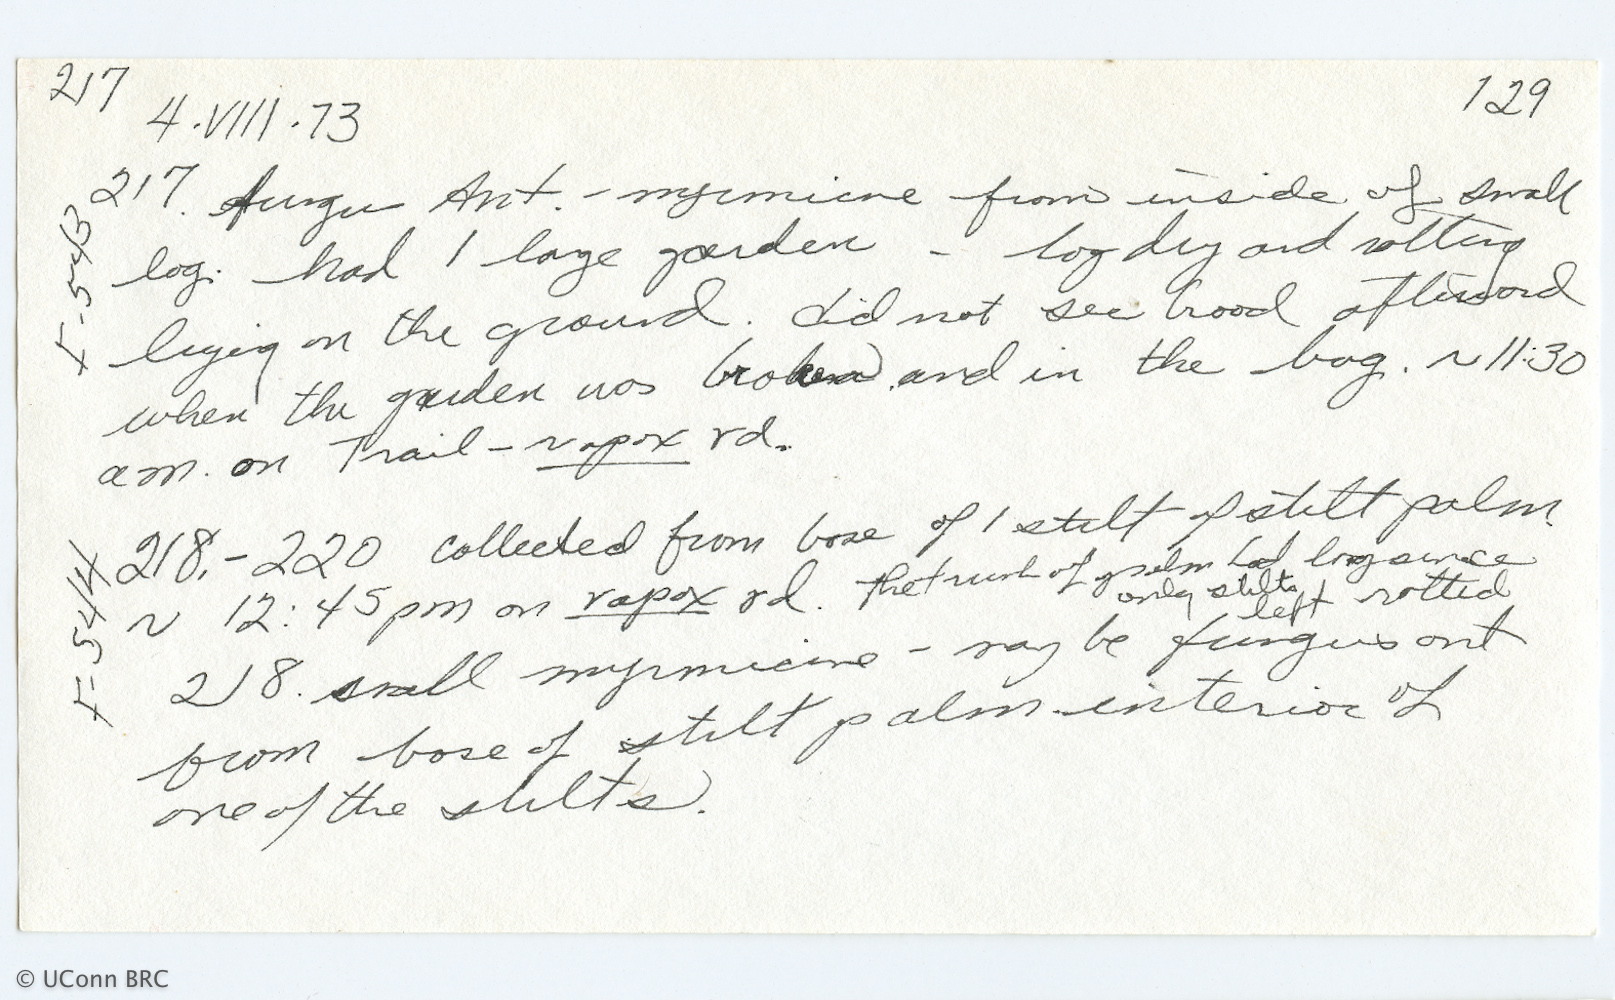 217
129
4.VIII.73
F-5413
217. fungu Ant. - myrmicine from inside of small
log. had 1 large garden - log dry and rotting
lying on the ground. did not see brood afterword
when the garden was broken and in the bag. ~ 11:30
am. on Trail - rapox rd.
F-5414
218. - 220 collected from base of 1 stilt of stilt palm
~ 12:45 pm on rapox rd. The trunk of palm had long since
only stilts left rotted
218. small myrmicine - may be fungus ant
from base of stilt palm - interior of
one of the stilts.
© UConn BRC